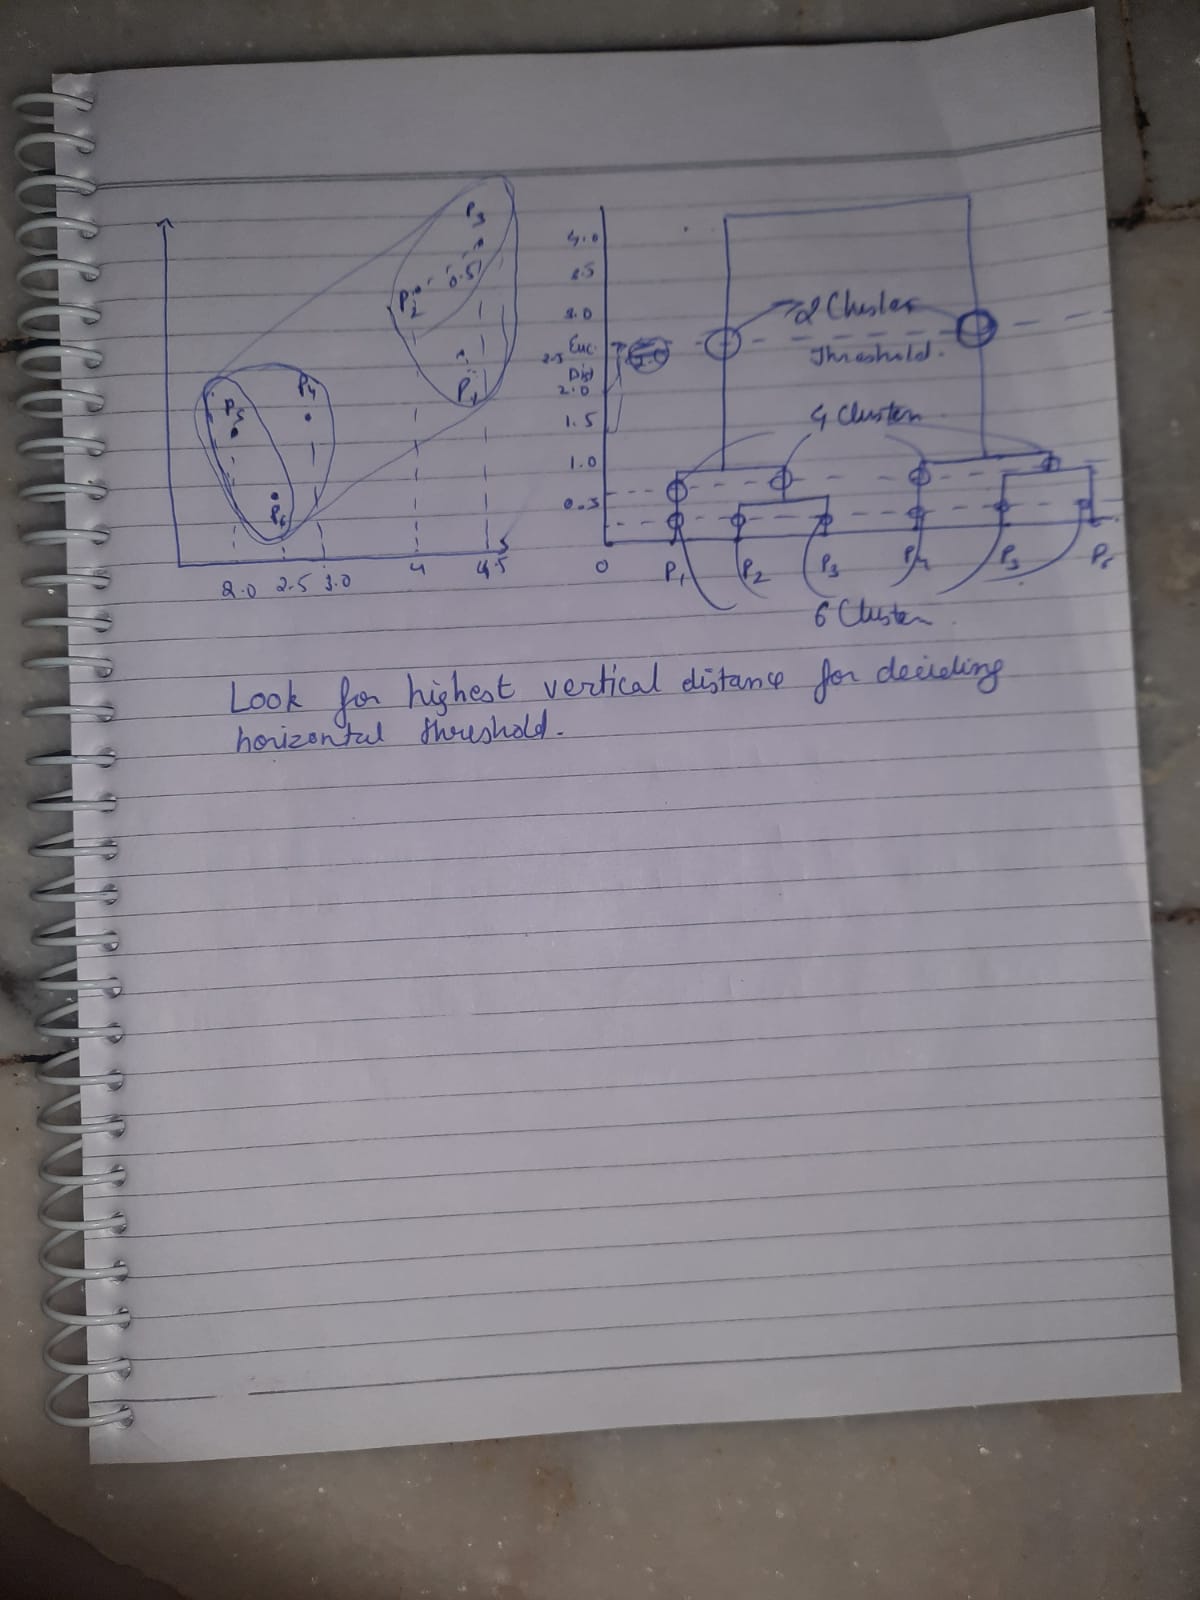 P3
P2
0.5
P1
P5
P4
P6
2.0 2.5 3.0 4 4.5
3.0
2.5
Euc.
Dis
2.0
1.5
1.0
0.5
0
2 Cluster
Threshold.
4 Cluster
P1 P2 P3 P4 P5 P6
6 Cluster
Look for highest vertical distance for deciding
horizontal threshold.